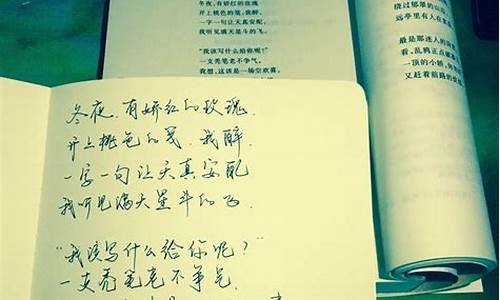 冬夜，有娇红的玫瑰
开上桃色的笺，我醉，
一字一句让天真安配，
我听见满天星斗的飞。
“我该写什么给你呢？”
一支秃笔老不争气，
我想，这该是一场空欢喜，
绕过郁翠的山
远亭里有人在
最是那迷人的
看，乱鸦正点破
一顶的小轿，
又赶着前路的
冬夜，有娇红的玫瑰，
开上桃色的笺，我醉，
一字一句让天真安配
我听见满天星斗的飞.
“我该写什么给你呢？”
一支秃笔老不争气，